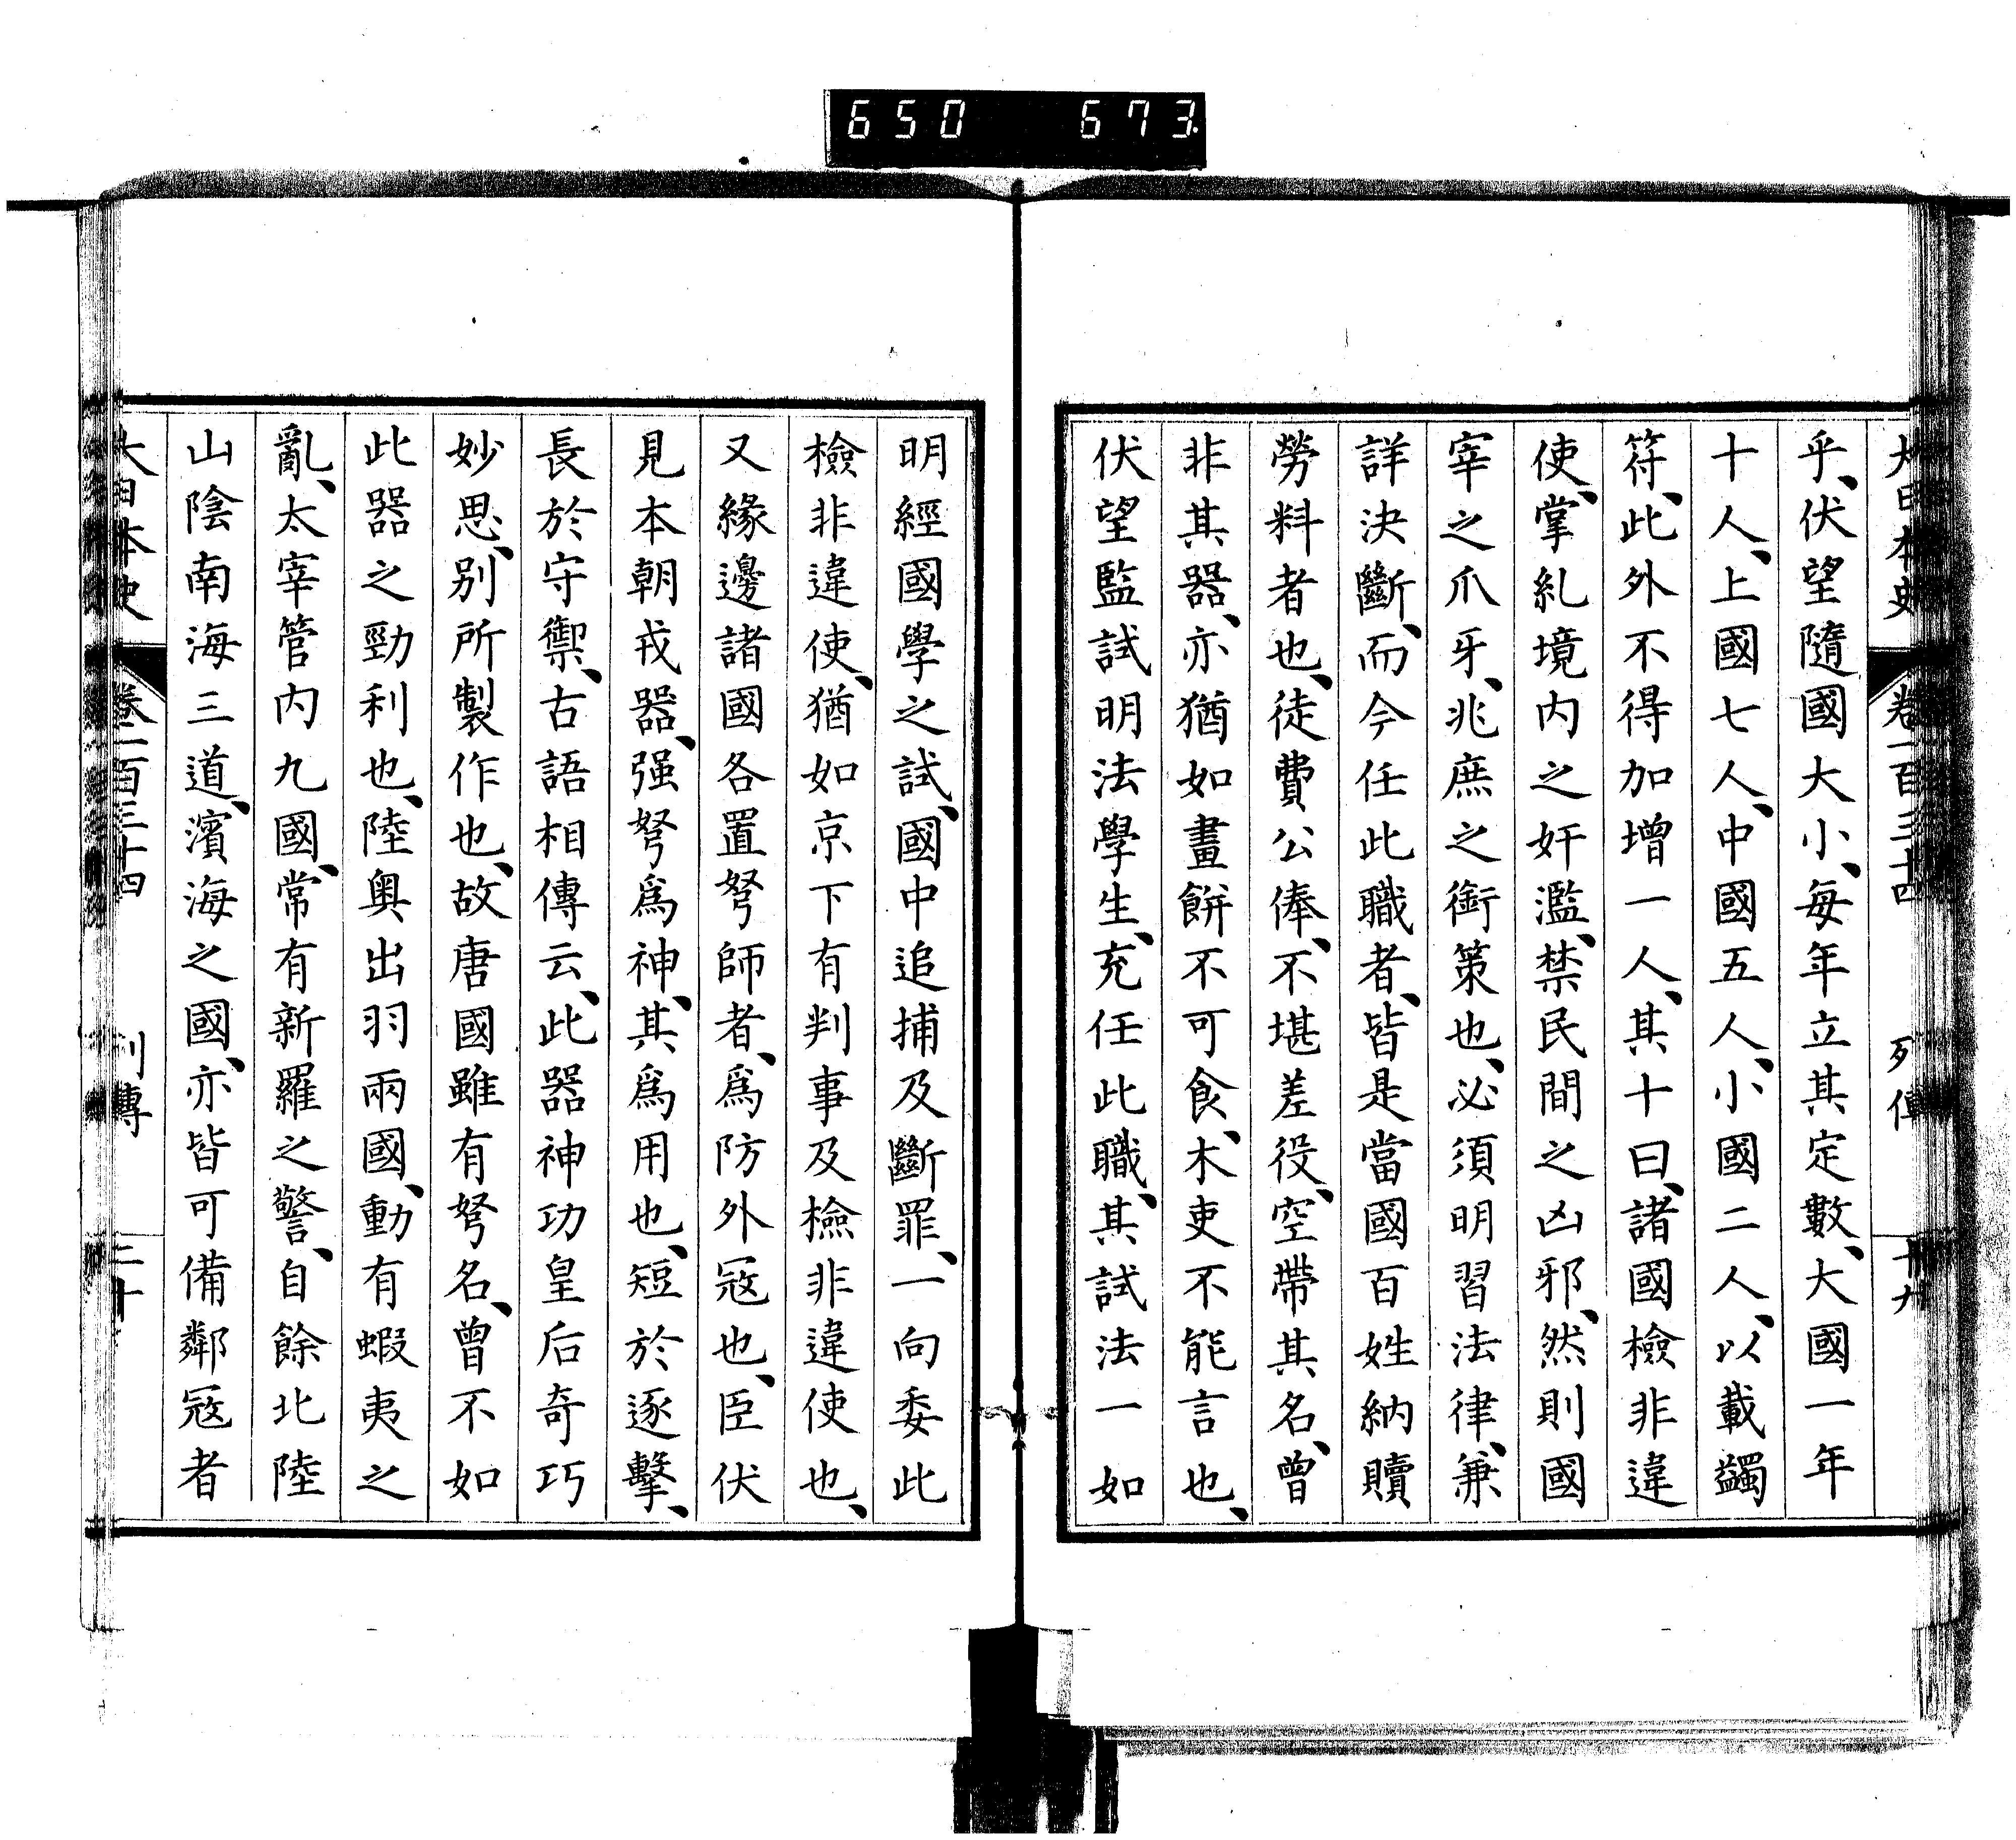 650 673
大日本史 卷一百三十四 列傳 十九
乎、伏望隨國大小、每年立其定數、大國一年
十人、上國七人、中國五人、小國二人、以載蠲
符、此外不得加增一人、其十曰、諸國檢非違
使、掌糺境内之奸濫、禁民間之凶邪、然則國
宰之爪牙、兆庶之銜策也、必須明習法律、兼
詳決斷、而今任此職者、皆是當國百姓納贖
勞料者也、徒費公俸、不堪差役、空帶其名、曾
非其器、亦猶如畫餅不可食、木吏不能言也、
伏望監試明法學生、充任此職、其試法一如
明經國學之試、國中追捕及斷罪、一向委此
檢非違使、猶如京下有判事及檢非違使也、
又緣邊諸國各置弩師者、爲防外冦也、臣伏
見本朝戎器、强弩爲神、其爲用也、短於逐擊、
長於守禦、古語相傳云、此器神功皇后奇巧
妙思、別所製作也、故唐國雖有弩名、曾不如
此器之勁利也、陸奥出羽兩國、動有蝦夷之
亂、太宰管内九國、常有新羅之警、自餘北陸
山陰南海三道、濱海之國、亦皆可備鄰冦者
大日本史 卷一百三十四 列傳 二十